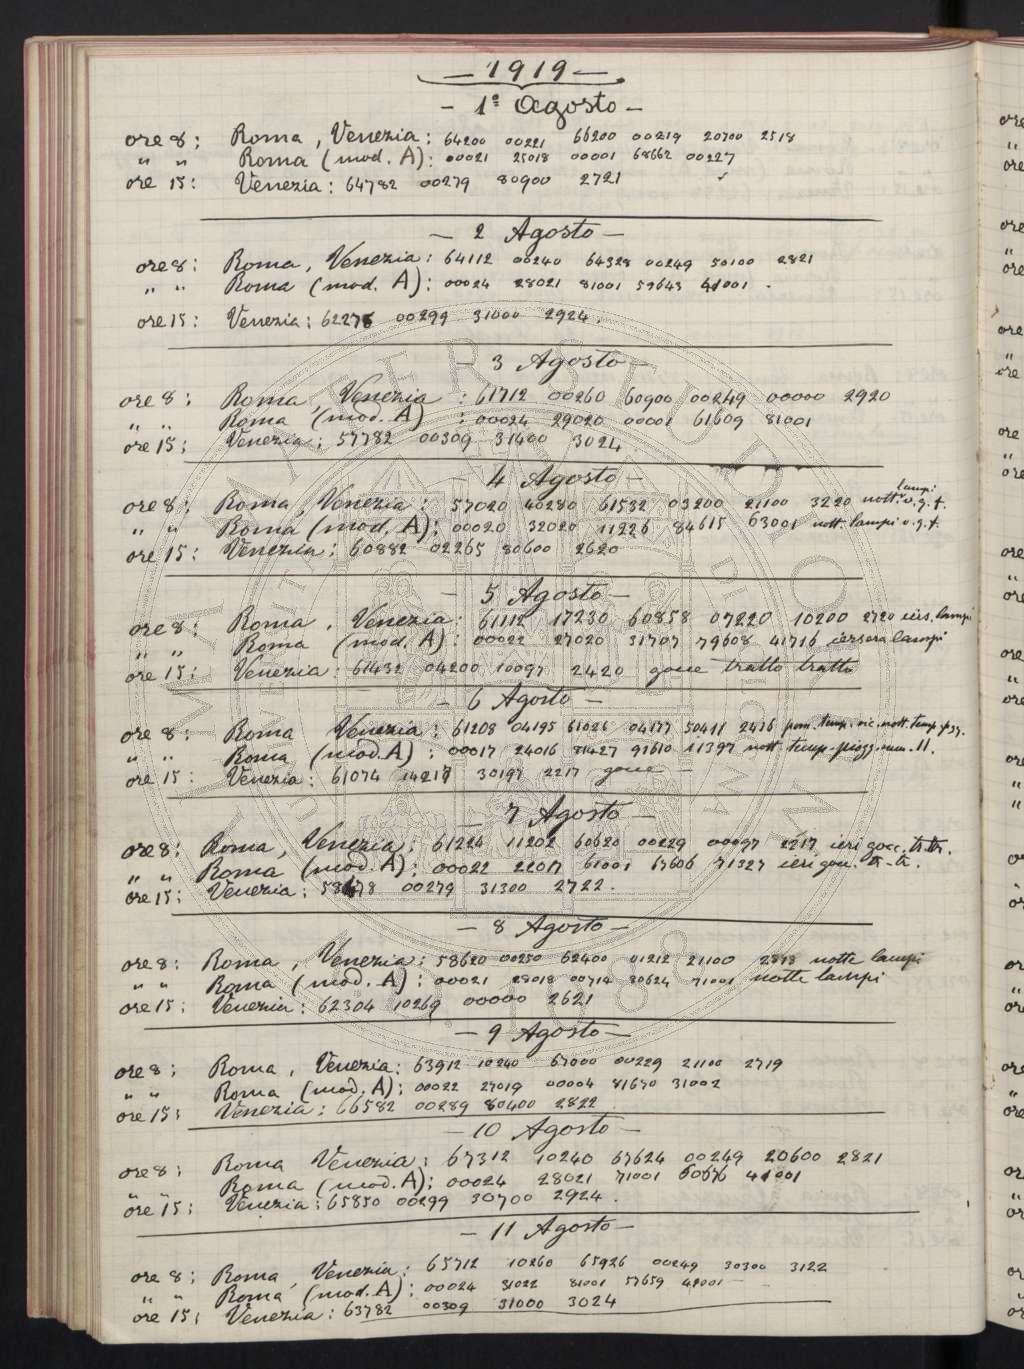 — 1919 —
— 1º Agosto —
ore 8 : Roma, Venezia : 64200 00221 66200 00219 20700 2518
" " Roma (mod. A) : 00021 25018 00001 68662 00227
ore 15 : Venezia : 64782 00279 80900 2721
— 2 Agosto —
ore 8 : Roma, Venezia : 64112 00240 64328 00249 50100 2821
" " Roma (mod. A) : 00024 28021 81001 59643 41001 .
ore 15 : Venezia : 62278 00299 31000 2924 .
— 3 Agosto —
ore 8 : Roma, Venezia : 61712 00260 60900 00249 00000 2920
" " Roma (mod. A) : 00024 29020 00001 61609 81001
ore 15 : Venezia : 57782 00309 31400 3024
— 4 Agosto —
ore 8 : Roma, Venezia : 57020 40280 61532 03200 21100 3220 nott. lampi v.g.t.
" " Roma (mod. A) : 00020 32020 11226 84615 63001 nott. lampi v.g.t.
ore 15 : Venezia : 60882 02265 80600 2620
— 5 Agosto —
ore 8 : Roma, Venezia : 61112 17230 60858 07220 10200 2720 iers. lampi
" " Roma (mod. A) : 00022 27020 31707 79608 41716 iersera lampi
ore 15 : Venezia : 61432 04200 10097 2420 gocce tratto tratto
— 6 Agosto —
ore 8 : Roma Venezia : 61208 04195 61026 04177 50411 2416 pom. temp. vic. nott. temp. pgg.
" " Roma (mod. A) : 00017 24016 81427 91610 11397 nott. temp. piogg. mm. 11.
ore 15 : Venezia : 61074 14217 30197 2217 gocce —
— 7 Agosto —
ore 8 : Roma, Venezia : 61224 11202 60620 00229 00097 2217 ieri gocc. tr. tr.
" " Roma (mod. A) : 00022 22017 61001 67606 71327 ieri gocc. tr.-tr.
ore 15 : Venezia : 00279 31300 2722 .
— 8 Agosto —
ore 8 : Roma, Venezia : 58620 00250 62400 01212 21100 2818 notte lampi
" " Roma (mod. A) : 00021 28018 00714 80624 71001 notte lampi
ore 15 : Venezia : 62304 10269 00000 2621
— 9 Agosto —
ore 8 : Roma, Venezia : 63912 10240 67000 00229 21100 2719
" " Roma (mod. A) : 00022 27019 00004 81670 31002
ore 15 : Venezia : 66582 00289 80400 2822
— 10 Agosto —
ore 8 : Roma Venezia : 67312 10240 67624 00249 20600 2821
" " Roma (mod. A) : 00024 28021 71001 60676 41001
ore 15 : Venezia : 65850 00299 30700 2924 .
— 11 Agosto —
ore 8 : Roma, Venezia : 65712 10260 65926 00249 30300 3122
" " Roma (mod. A) : 00024 31022 81001 57659 41001
ore 15 : Venezia : 63782 00309 31000 3024